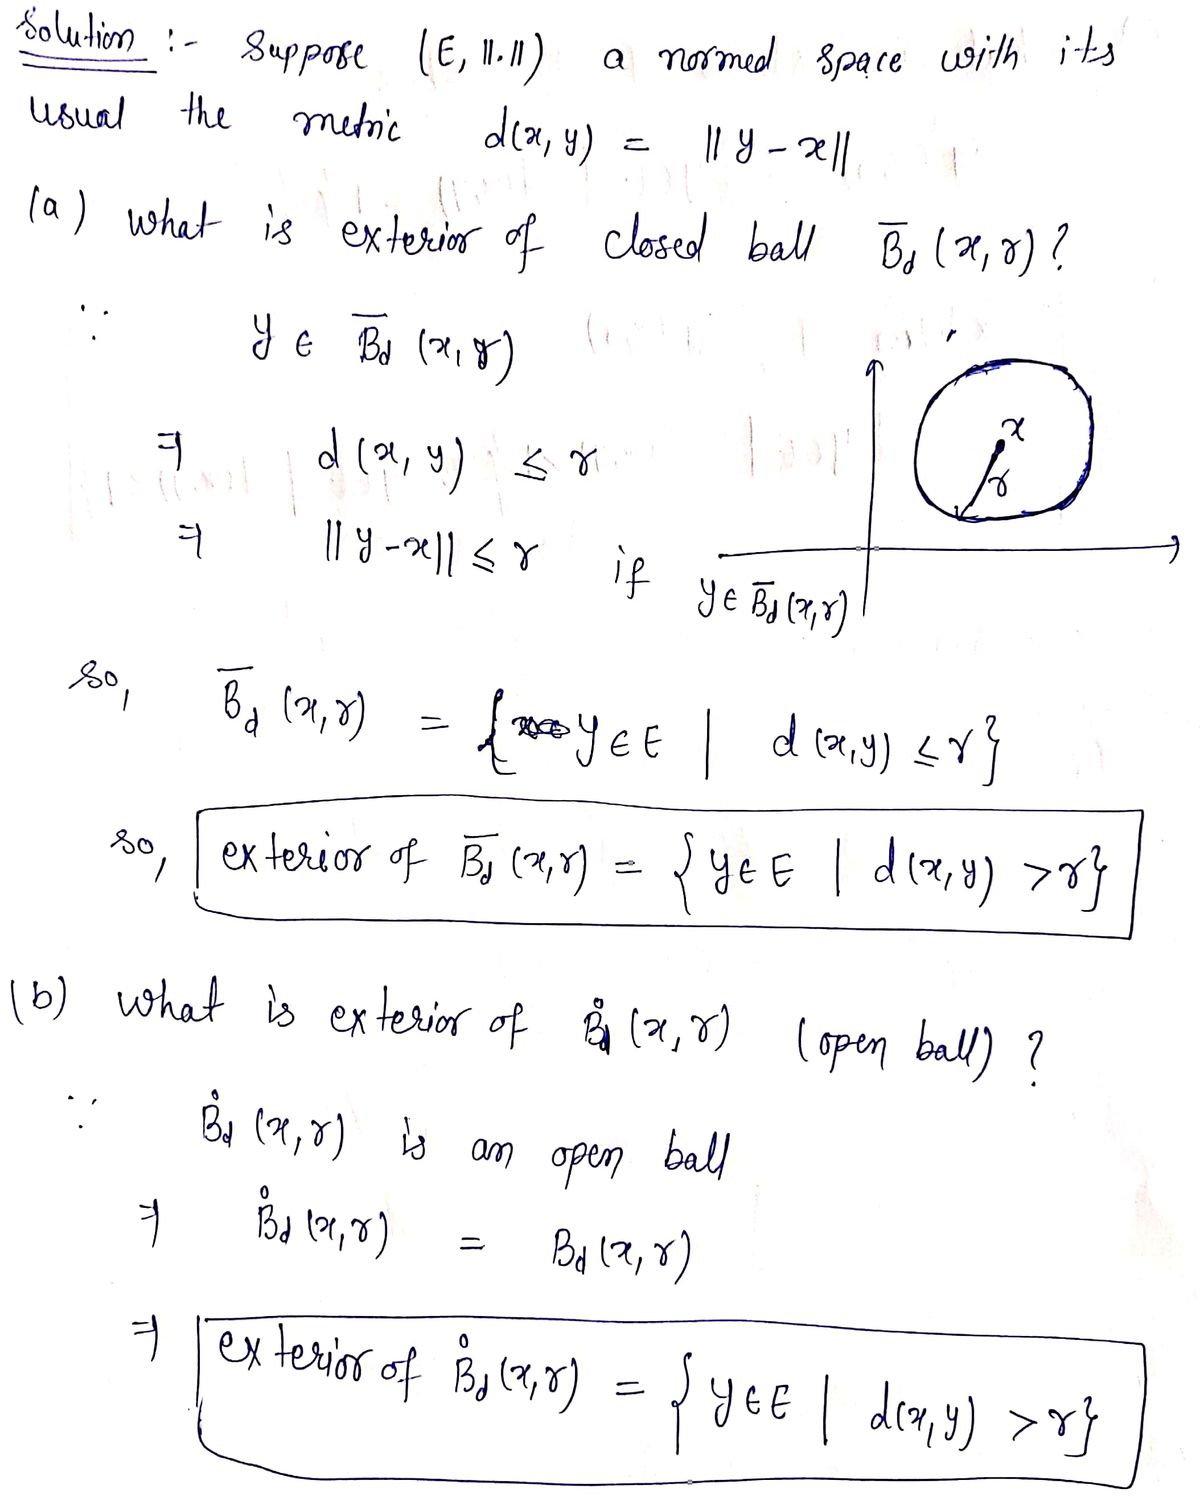 Solution :- Suppose (E, ||.||) a normed space with its
usual the metric d(x, y) = || y - x ||
(a) what is exterior of closed ball B̅d (x, r) ?
∵ y ∈ B̅d (x, r)
⇒ d (x, y) ≤ r
x
r
⇒ || y - x || ≤ r if y ∈ B̅d (x, r)
so, B̅d (x, r) = { y ∈ E | d (x, y) ≤ r }
so, exterior of B̅d (x, r) = { y ∈ E | d (x, y) > r }
(b) what is exterior of B̊d (x, r) (open ball) ?
∵ B̊d (x, r) is an open ball
⇒ B̊d (x, r) = Bd (x, r)
⇒ exterior of B̊d (x, r) = { y ∈ E | d(x, y) > r }